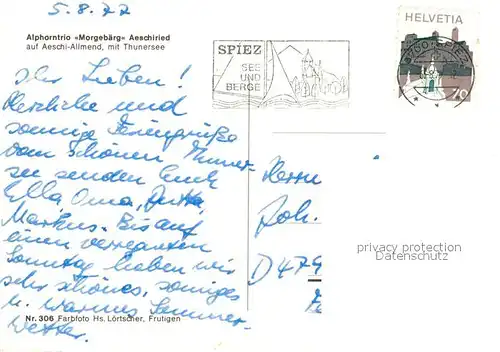 5.8.77
Alphorntrio «Morgebärg» Aeschiried
auf Aeschi-Allmend, mit Thunersee
SPIEZ
SEE
UND
BERGE
HELVETIA
3700 SPIEZ
70
Ihr Lieben!
Herzliche und
sonnige Feriengrüße
vom schönen Thuner-
see senden Euch
Ella Oma, Jutta,
Markus. Bis auf
einen verregneten
Sonntag haben wir
sehr schönes, sonniges
u. warmes Sommer-
wetter.
Herrn
Joh.
D 479
privacy protection
Datenschutz
Nr. 306 Farbfoto Hs. Lörtscher, Frutigen